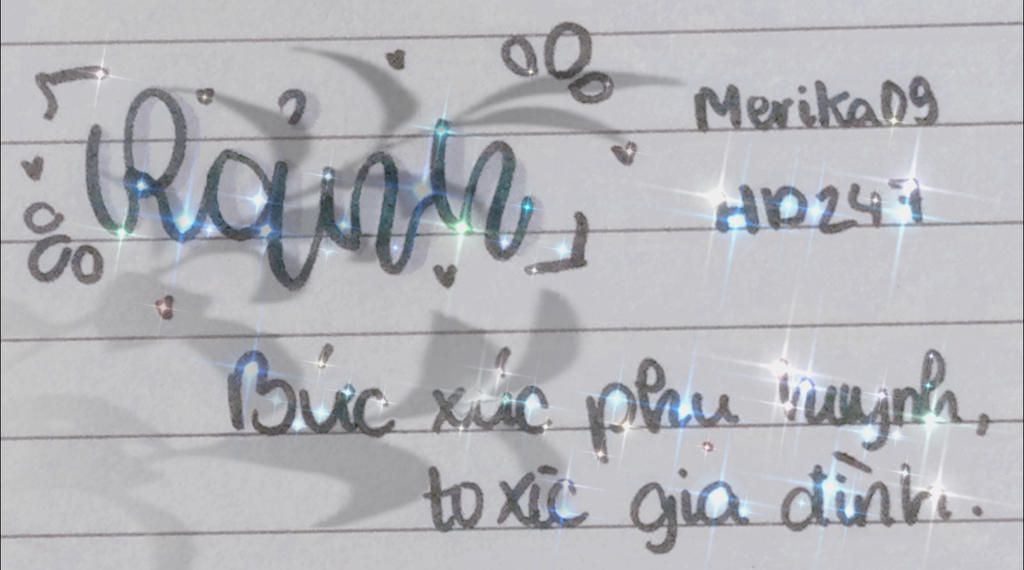 Rảnh
Merika09
HD247
Bức xúc phụ huynh,
toxic gia đình.